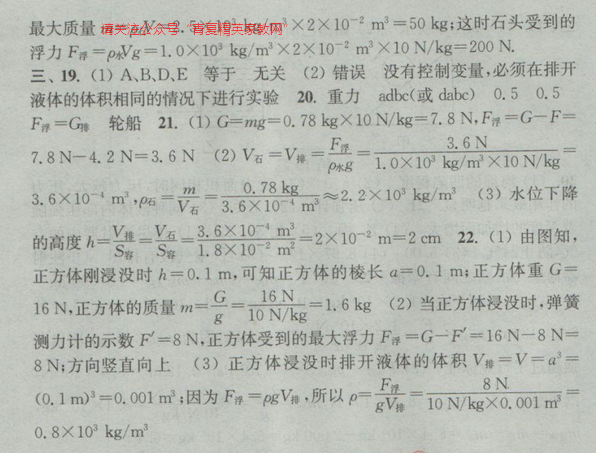 最大质量 m=ρ石V=2.5×10³ kg/m³×2×10⁻² m³=50 kg;这时石头受到的
请关注公众号:"青夏精英家教网"
浮力 F浮=ρ水Vg=1.0×10³ kg/m³×2×10⁻² m³×10 N/kg=200 N.
三、19. (1) A、B、D、E 等于 无关 (2) 错误 没有控制变量,必须在排开
液体的体积相同的情况下进行实验 20. 重力 adbc(或 dabc) 0.5 0.5
F浮=G排 轮船 21. (1) G=mg=0.78 kg×10 N/kg=7.8 N,F浮=G-F=
7.8 N-4.2 N=3.6 N (2) V石=V排=F浮/ρ水g=3.6 N/1.0×10³ kg/m³×10 N/kg=
3.6×10⁻⁴ m³,ρ石=m/V石=0.78 kg/3.6×10⁻⁴ m³≈2.2×10³ kg/m³ (3) 水位下降
的高度 h=V排/S容=V石/S容=3.6×10⁻⁴ m³/1.8×10⁻² m²=2×10⁻² m=2 cm 22. (1) 由图知,
正方体刚浸没时 h=0.1 m,可知正方体的棱长 a=0.1 m;正方体重 G=
16 N,正方体的质量 m=G/g=16 N/10 N/kg=1.6 kg (2) 当正方体浸没时,弹簧
测力计的示数 F′=8 N,正方体受到的最大浮力 F浮=G-F′=16 N-8 N=
8 N;方向竖直向上 (3) 正方体浸没时排开液体的体积 V排=V=a³=
(0.1 m)³=0.001 m³;因为 F浮=ρgV排,所以 ρ=F浮/gV排=8 N/10 N/kg×0.001 m³=
0.8×10³ kg/m³